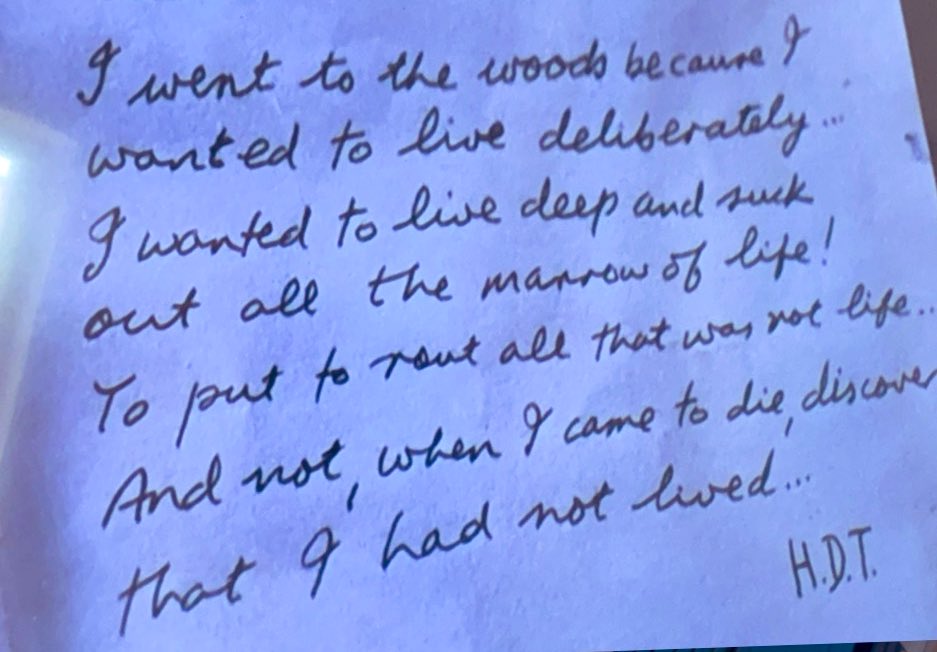 I went to the woods because I
wanted to live deliberately...
I wanted to live deep and suck
out all the marrow of life!
To put to rout all that was not life..
And not, when I came to die, discover
that I had not lived...
H.D.T.